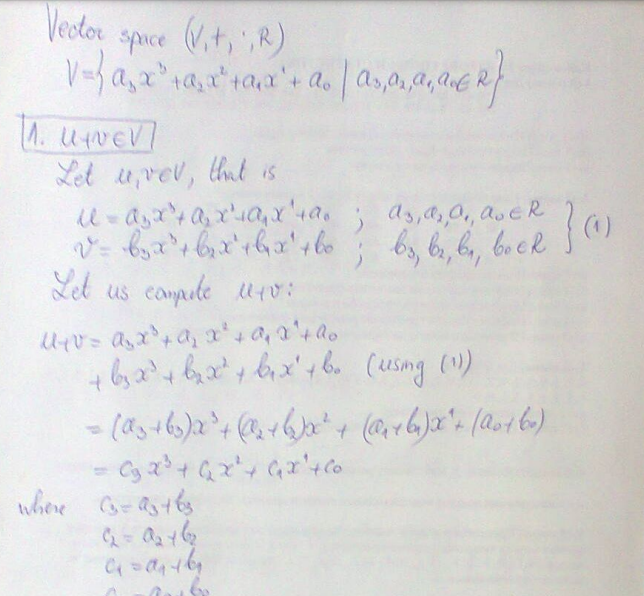 Vector space (V,+,·,R)
V={a₃x³+a₂x²+a₁x¹+a₀ | a₃,a₂,a₁,a₀∈R}
1. u+v∈V
Let u,v∈V, that is
u=a₃x³+a₂x²+a₁x¹+a₀ ; a₃,a₂,a₁,a₀∈R } (1)
v=b₃x³+b₂x²+b₁x¹+b₀ ; b₃,b₂,b₁,b₀∈R
Let us compute u+v:
u+v=a₃x³+a₂x²+a₁x¹+a₀
+b₃x³+b₂x²+b₁x¹+b₀ (using (1))
=(a₃+b₃)x³+(a₂+b₂)x²+(a₁+b₁)x¹+(a₀+b₀)
=c₃x³+c₂x²+c₁x¹+c₀
where c₃=a₃+b₃
c₂=a₂+b₂
c₁=a₁+b₁
c₀=a₀+b₀